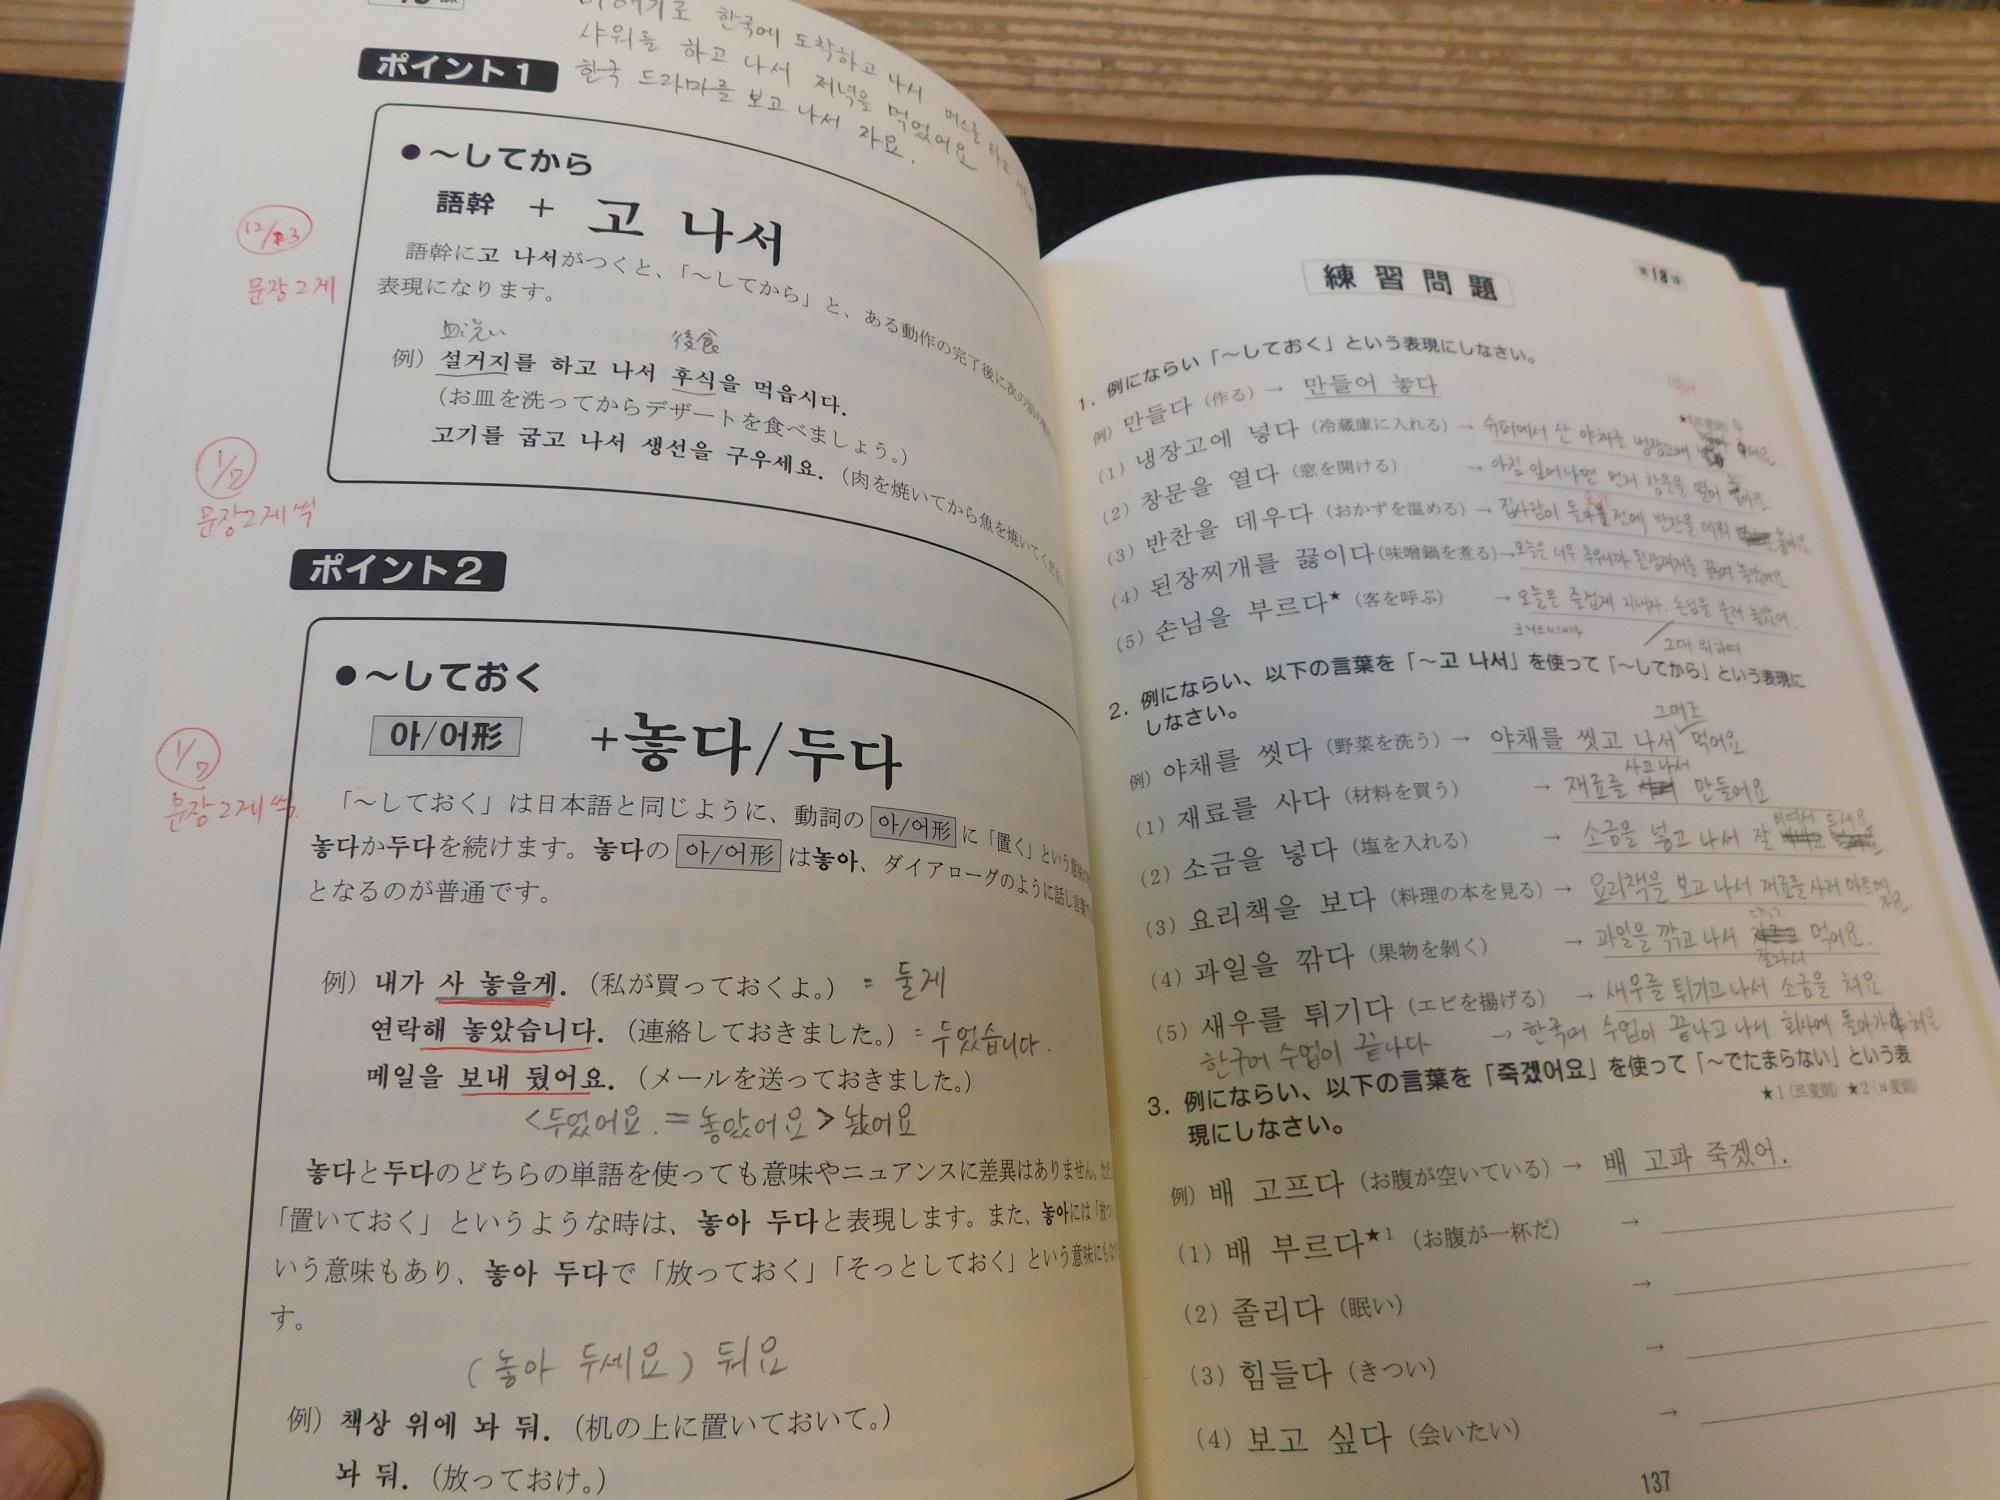 한국에 도착하고 나서 버스를 타고
샤워를 하고 나서 저녁을 먹었어요
한국 드라마를 보고 나서 자요.
ポイント1
●～してから
語幹 + 고 나서
語幹に고 나서がつくと、「～してから」と、ある動作の完了後に次の
表現になります。
12/23
문장 2게
皿洗い 後食
例）설거지를 하고 나서 후식을 먹읍시다.
（お皿を洗ってからデザートを食べましょう。）
고기를 굽고 나서 생선을 구우세요.（肉を焼いてから魚を焼いてください
1/7
문장 2게 씩
ポイント2
●～しておく
아/어形 +놓다/두다
1/7
문장 2게 씩.
「～しておく」は日本語と同じように、動詞の 아/어形 に「置く」という意味の
놓다か두다を続けます。놓다の 아/어形 は놓아、ダイアローグのように話し言葉で
となるのが普通です。
例）내가 사 놓을게.（私が買っておくよ。）= 둘게
연락해 놓았습니다.（連絡しておきました。）= 두었습니다.
메일을 보내 뒀어요.（メールを送っておきました。）
<두었어요. = 놓았어요> 놨어요
놓다と두다のどちらの単語を使っても意味やニュアンスに差異はありません。ただ
「置いておく」というような時は、놓아 두다と表現します。また、놓아には「放つ」
いう意味もあり、놓아 두다で「放っておく」「そっとしておく」という意味にも
す。
(놓아 두세요) 둬요
例）책상 위에 놔 둬.（机の上に置いておいて。）
놔 둬.（放っておけ。）
第18課
練習問題
1. 例にならい「～しておく」という表現にしなさい。
例）만들다（作る）→ 만들어 놓다
（1）냉장고에 넣다（冷蔵庫に入れる）→ 슈퍼에서 산 야채를 냉장고에
（2）창문을 열다（窓を開ける）→ 아침 일어나면 먼저 창문을 열어 놓아요
（3）반찬을 데우다（おかずを温める）→ 집사람이 전에 반찬을 데워 놓아요
（4）된장찌개를 끓이다（味噌鍋を煮る）→ 오늘은 너무 추우니까 된장찌개를 끓여 놓았어요
（5）손님을 부르다★（客を呼ぶ）→ 오늘은 즐겁게 지내자. 손님을 불러 놓았어.
2. 例にならい、以下の言葉を「～고 나서」を使って「～してから」という表現に
しなさい。
例）야채를 씻다（野菜を洗う）→ 야채를 씻고 나서 먹어요
사고 나서
（1）재료를 사다（材料を買う）→ 재료를 만들어요
（2）소금을 넣다（塩を入れる）→ 소금을 넣고 나서 잘
（3）요리책을 보다（料理の本を見る）→ 요리책을 보고 나서 재료를 사러 마트에
（4）과일을 깎다（果物を剝く）→ 과일을 깎고 나서 먹어요.
잘라서
（5）새우를 튀기다（エビを揚げる）→ 새우를 튀기고 나서 소금을 쳐요.
한국어 수업이 끝나다 → 한국어 수업이 끝나고 나서 회사에
3. 例にならい、以下の言葉を「죽겠어요」を使って「～でたまらない」という表
現にしなさい。
★1（르変則）★2（ㅂ変則）
例）배 고프다（お腹が空いている）→ 배 고파 죽겠어.
（1）배 부르다★1（お腹が一杯だ）→
（2）졸리다（眠い）→
（3）힘들다（きつい）→
（4）보고 싶다（会いたい）→
137